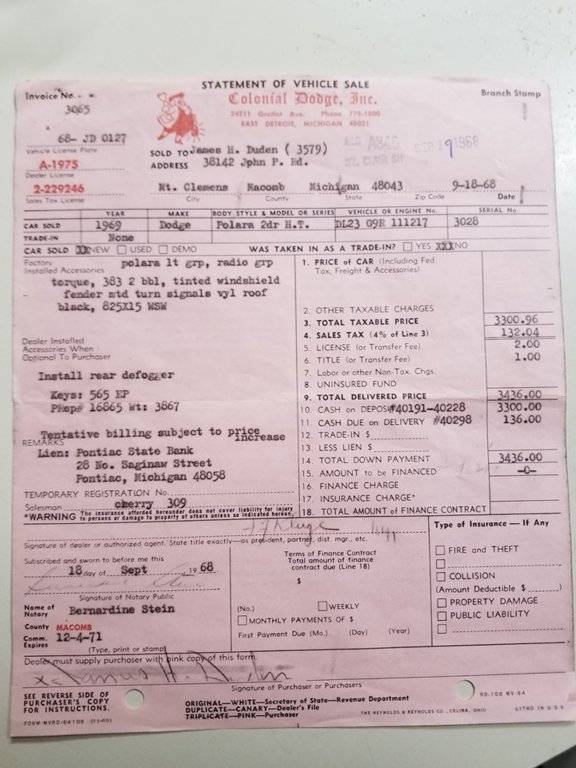 STATEMENT OF VEHICLE SALE
Invoice No.
3065
Colonial Dodge, Inc.
Branch Stamp
24211 Gratiot Ave. Phone 778-1800
EAST DETROIT, MICHIGAN 48021
68- JD 0127
Vehicle License Plate
SEP 19 1968
SOLD TO James H. Duden ( 3579)
A-1975
ADDRESS 38142 Jphn P. Rd.
Dealer License
2-229246
Mt. Clemens Macomb Michigan 48043 9-18-68
Sales Tax License
City County State Zip Code Date
YEAR MAKE BODY STYLE & MODEL OR SERIES VEHICLE OR ENGINE No. SERIAL No.
CAR SOLD 1969 Dodge Polara 2dr H.T. DL23 G9R 111217 3028
TRADE-IN None
CAR SOLD XX NEW USED DEMO WAS TAKEN IN AS A TRADE-IN? YES XXX NO
Factory Installed Accessories
polara lt grp, radio grp
torque, 383 2 bbl, tinted windshield
fender mtd turn signals vyl roof
black, 825X15 WSW
Dealer Installed
Accessories When
Optional To Purchaser
Install rear defogger
Keys: 565 EP
16865 Wt: 3867
Tentative billing subject to price
increase
REMARKS
Lien: Pontiac State Bank
28 No. Saginaw Street
Pontiac, Michigan 48058
TEMPORARY REGISTRATION No.
Salesman cherry 309
*WARNING The insurance afforded hereunder does not cover liability for injury
to persons or damage to property of others unless so indicated hereon.
1. PRICE of CAR (Including Fed.
Tax, Freight & Accessories)
2. OTHER TAXABLE CHARGES
3. TOTAL TAXABLE PRICE 3300.96
4. SALES TAX (4% of Line 3) 132.04
5. LICENSE (or Transfer Fee) 2.00
6. TITLE (or Transfer Fee) 1.00
7. Labor or other Non-Tax. Chgs.
8. UNINSURED FUND
9. TOTAL DELIVERED PRICE 3436.00
10. CASH on DEPOSIT #40191-40228 3300.00
11. CASH DUE on DELIVERY #40298 136.00
12. TRADE-IN $
13. LESS LIEN $
14. TOTAL DOWN PAYMENT 3436.00
15. AMOUNT to be FINANCED -0-
16. FINANCE CHARGE
17. INSURANCE CHARGE*
18. TOTAL AMOUNT of FINANCE CONTRACT
Signature of dealer or authorized agent. State title exactly—as president, partner, dist. mgr., etc.
Subscribed and sworn to before me this
18 day of Sept 1968
Signature of Notary Public
Name of Notary Bernardine Stein
County MACOMB
Comm. Expires 12-4-71
(Type, print or stamp)
Terms of Finance Contract
Total amount of finance
contract due (Line 18)
$
(No.) WEEKLY
MONTHLY PAYMENTS OF $
First Payment Due (Mo.) (Day) (Year)
Type of Insurance — If Any
FIRE and THEFT
COLLISION
(Amount Deductible $ )
PROPERTY DAMAGE
PUBLIC LIABILITY
Dealer must supply purchaser with pink copy of this form.
x James H. Duden
Signature of Purchaser or Purchasers
SEE REVERSE SIDE OF
PURCHASER'S COPY
FOR INSTRUCTIONS.
ORIGINAL—WHITE—Secretary of State—Revenue Department
DUPLICATE—CANARY—Dealer's File
TRIPLICATE—PINK—Purchaser
RD-108 MV-64
THE REYNOLDS & REYNOLDS CO., CELINA, OHIO
LITHO IN U.S.A.